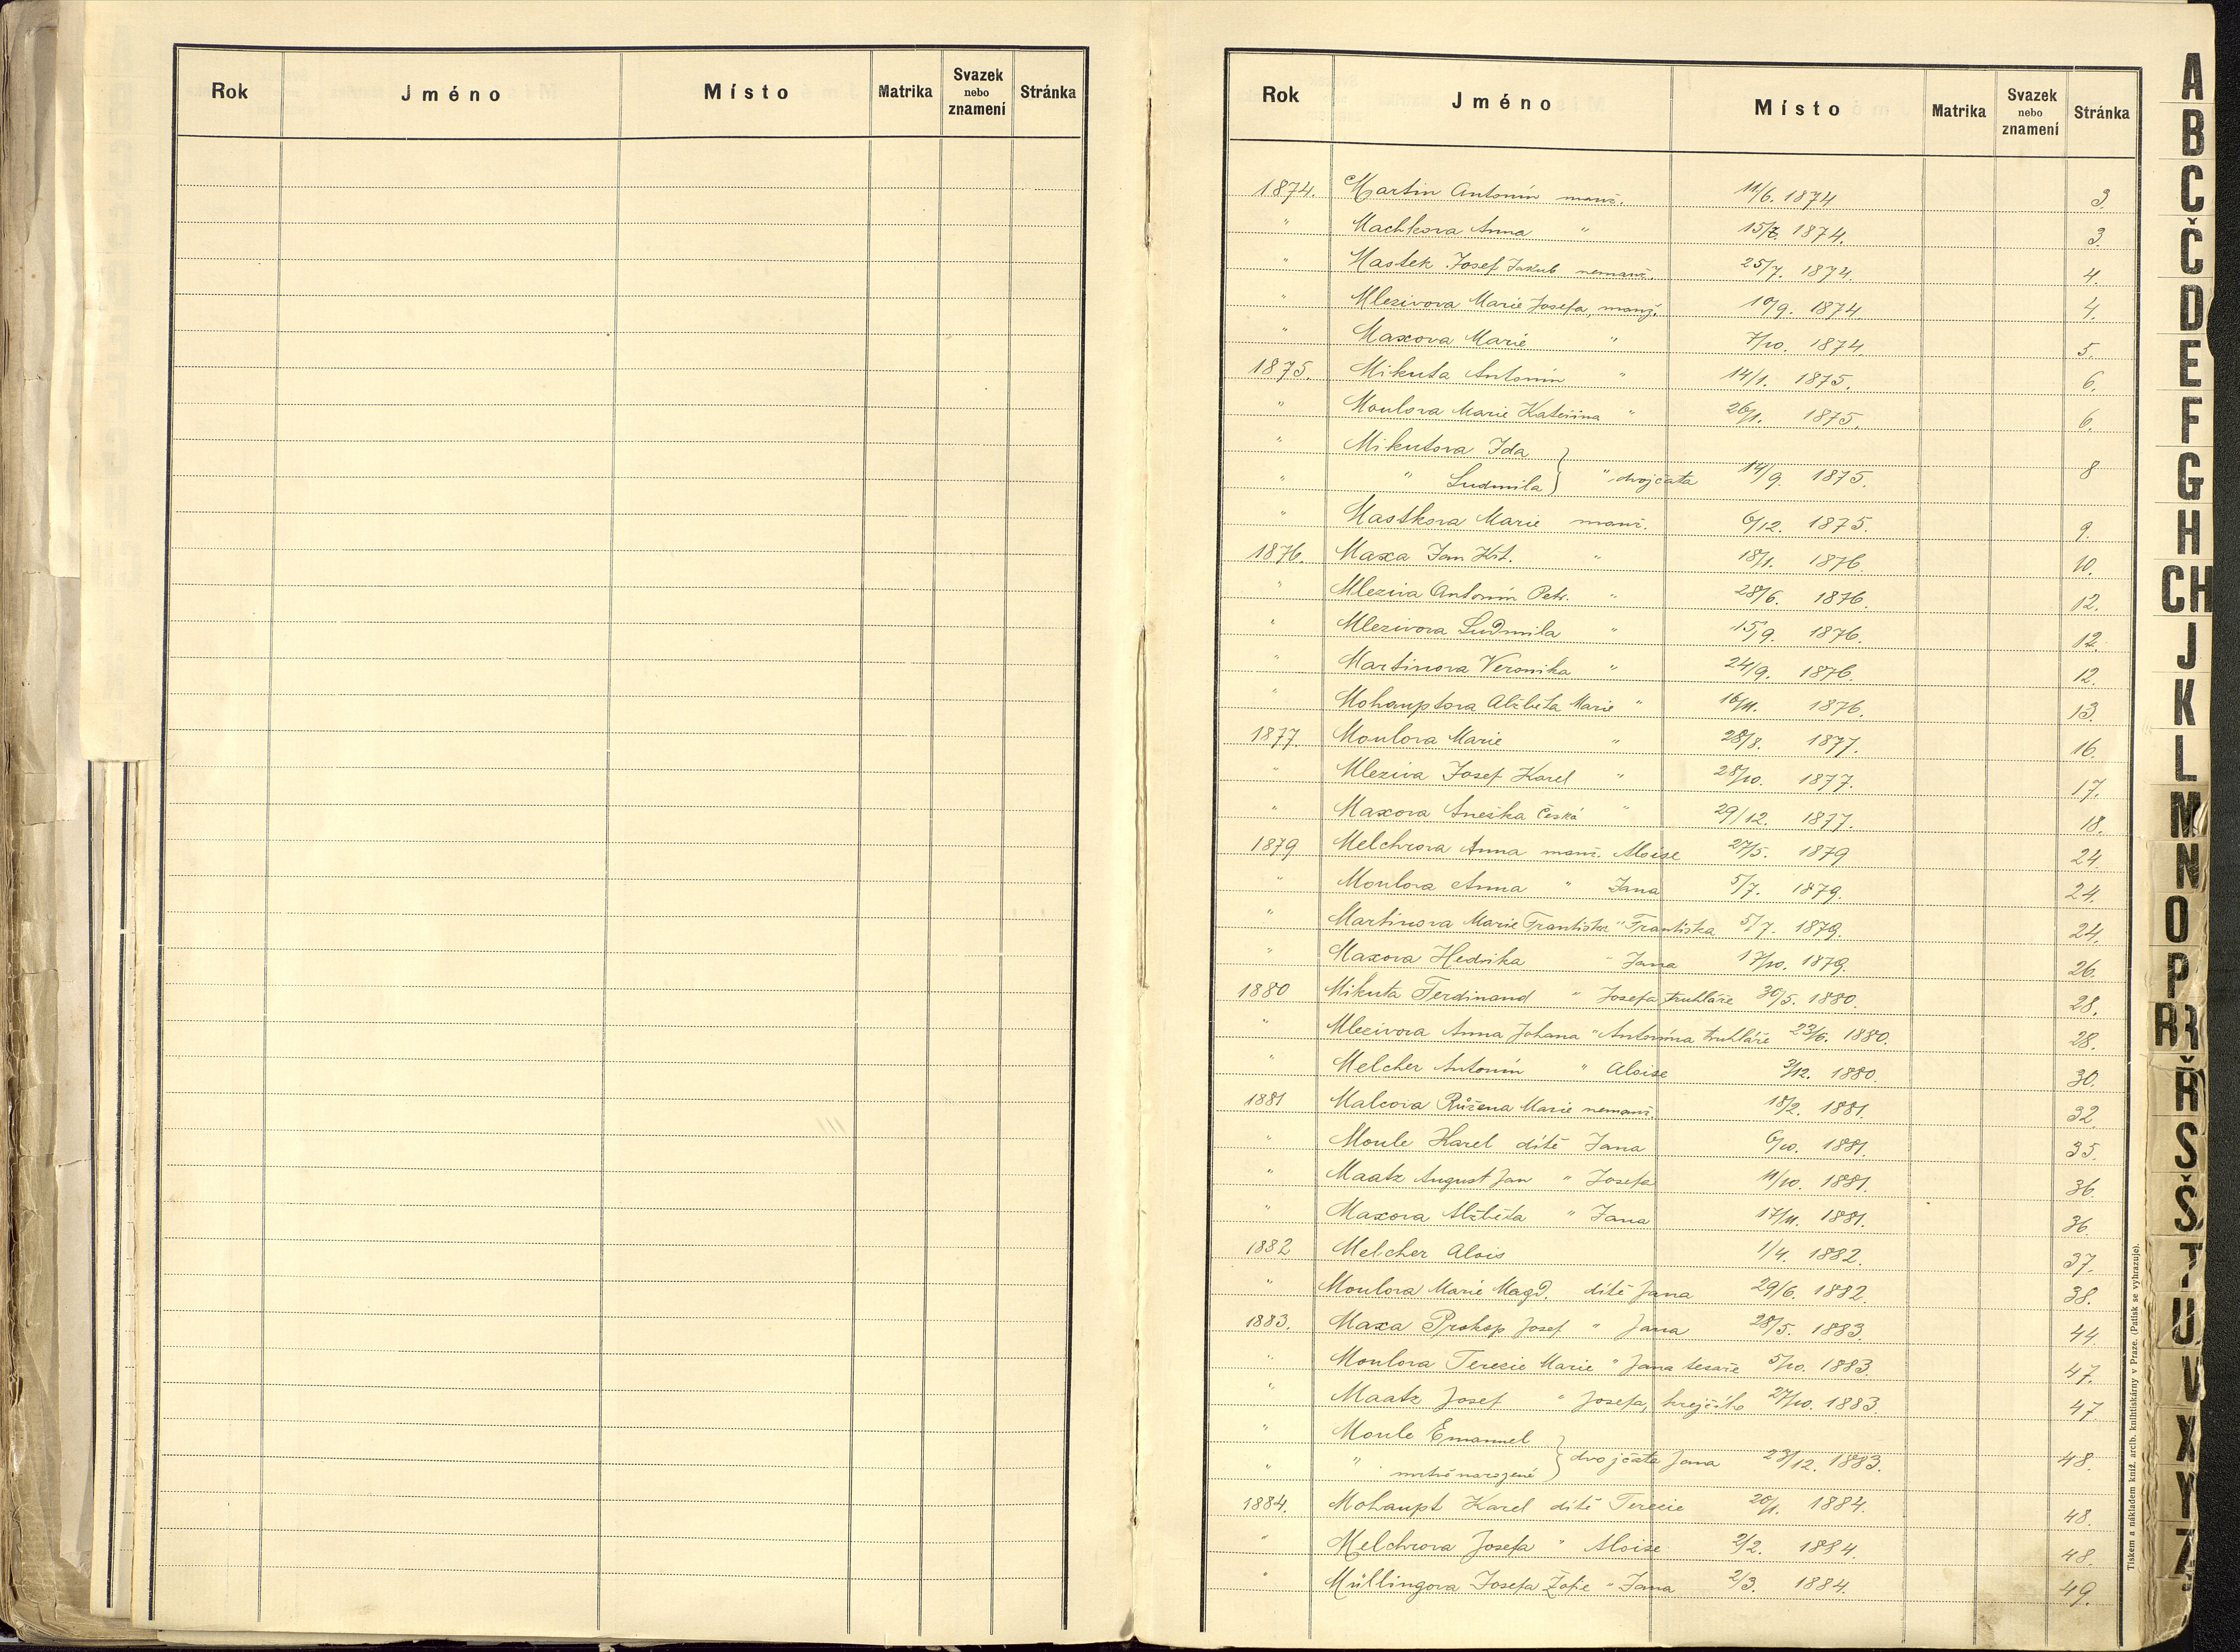 Rok Jméno Místo Matrika Svazek nebo znamení Stránka
Rok Jméno Místo Matrika Svazek nebo znamení Stránka
1874. Martin Antonín manž. 11/6. 1874 3.
" Machkova Anna " 15/7. 1874. 3.
" Mastek Josef Jakub nemanž. 25/7. 1874. 4.
" Mlezivova Marie Josefa, manž. 10/9. 1874 4.
" Maxova Marie " 7/10. 1874. 5.
1875. Mikuta Antonín " 14/1. 1875. 6.
" Moulova Marie Kateřina " 26/1. 1875. 6.
" Mikutova Ida
" " Ludmila } " dvojčata 14/9. 1875. 8
" Mastkova Marie manž. 6/12. 1875. 9.
1876. Maxa Jan Křt. " 18/1. 1876. 10.
" Mleziva Antonín Petr. " 28/6. 1876. 12.
" Mlezivova Ludmila " 15/9. 1876. 12.
" Martinova Veronika " 24/9. 1876. 12.
" Mohauptova Alžběta Marie " 16/11. 1876. 13.
1877. Moulova Marie " 28/8. 1877. 16.
" Mleziva Josef Karel " 28/10. 1877. 17.
" Maxova Anežka Česká " 29/12. 1877. 18.
1879 Melchrova Anna manž. Aloise 27/5. 1879 24
" Moulova Anna " Jana 5/7. 1879. 24.
" Martinova Marie Františka " Františka 5/7. 1879. 24.
" Maxova Hedvika " Jana 17/10. 1879. 26.
1880 Mikuta Ferdinand " Josefa truhláře 30/5. 1880. 28.
" Mlezivova Anna Johana " Antonína truhláře 23/6. 1880. 28.
" Melcher Antonín " Aloise 3/12. 1880. 30.
1881 Malcova Růžena Marie nemanž. 18/2. 1881. 32
" Moule Karel dítě Jana 6/10. 1881. 35.
" Maatz August Jan " Josefa 11/10. 1881. 36.
" Maxova Alžběta " Jana 17/11. 1881. 36.
1882 Melcher Alois 1/4. 1882. 37.
" Moulova Marie Magd. dítě Jana 29/6. 1882. 38.
1883. Maxa Prokop Josef " Jana 28/5. 1883. 44.
" Moulova Terezie Marie " Jana tesaře 5/10. 1883. 47.
" Maatz Josef " Josefa, krejčího 27/10. 1883. 47
" Moule Emanuel
" " mrtvě narozené } dvojčata Jana 23/12. 1883. 48.
1884. Mohaupt Karel dítě Terezie 20/1. 1884. 48.
" Melchrova Josefa " Aloise 2/2. 1884. 48.
" Müllingova Josefa Žofie " Jana 2/3. 1884. 49.
Tiskem a nákladem kníž. arcib. knihtiskárny v Praze. (Patisk se vyhrazuje).
A
B
C
Č
D
E
F
G
H
CH
J
K
L
M
N
O
P
R
Ř
S
Š
T
U
V
X
Y
Z